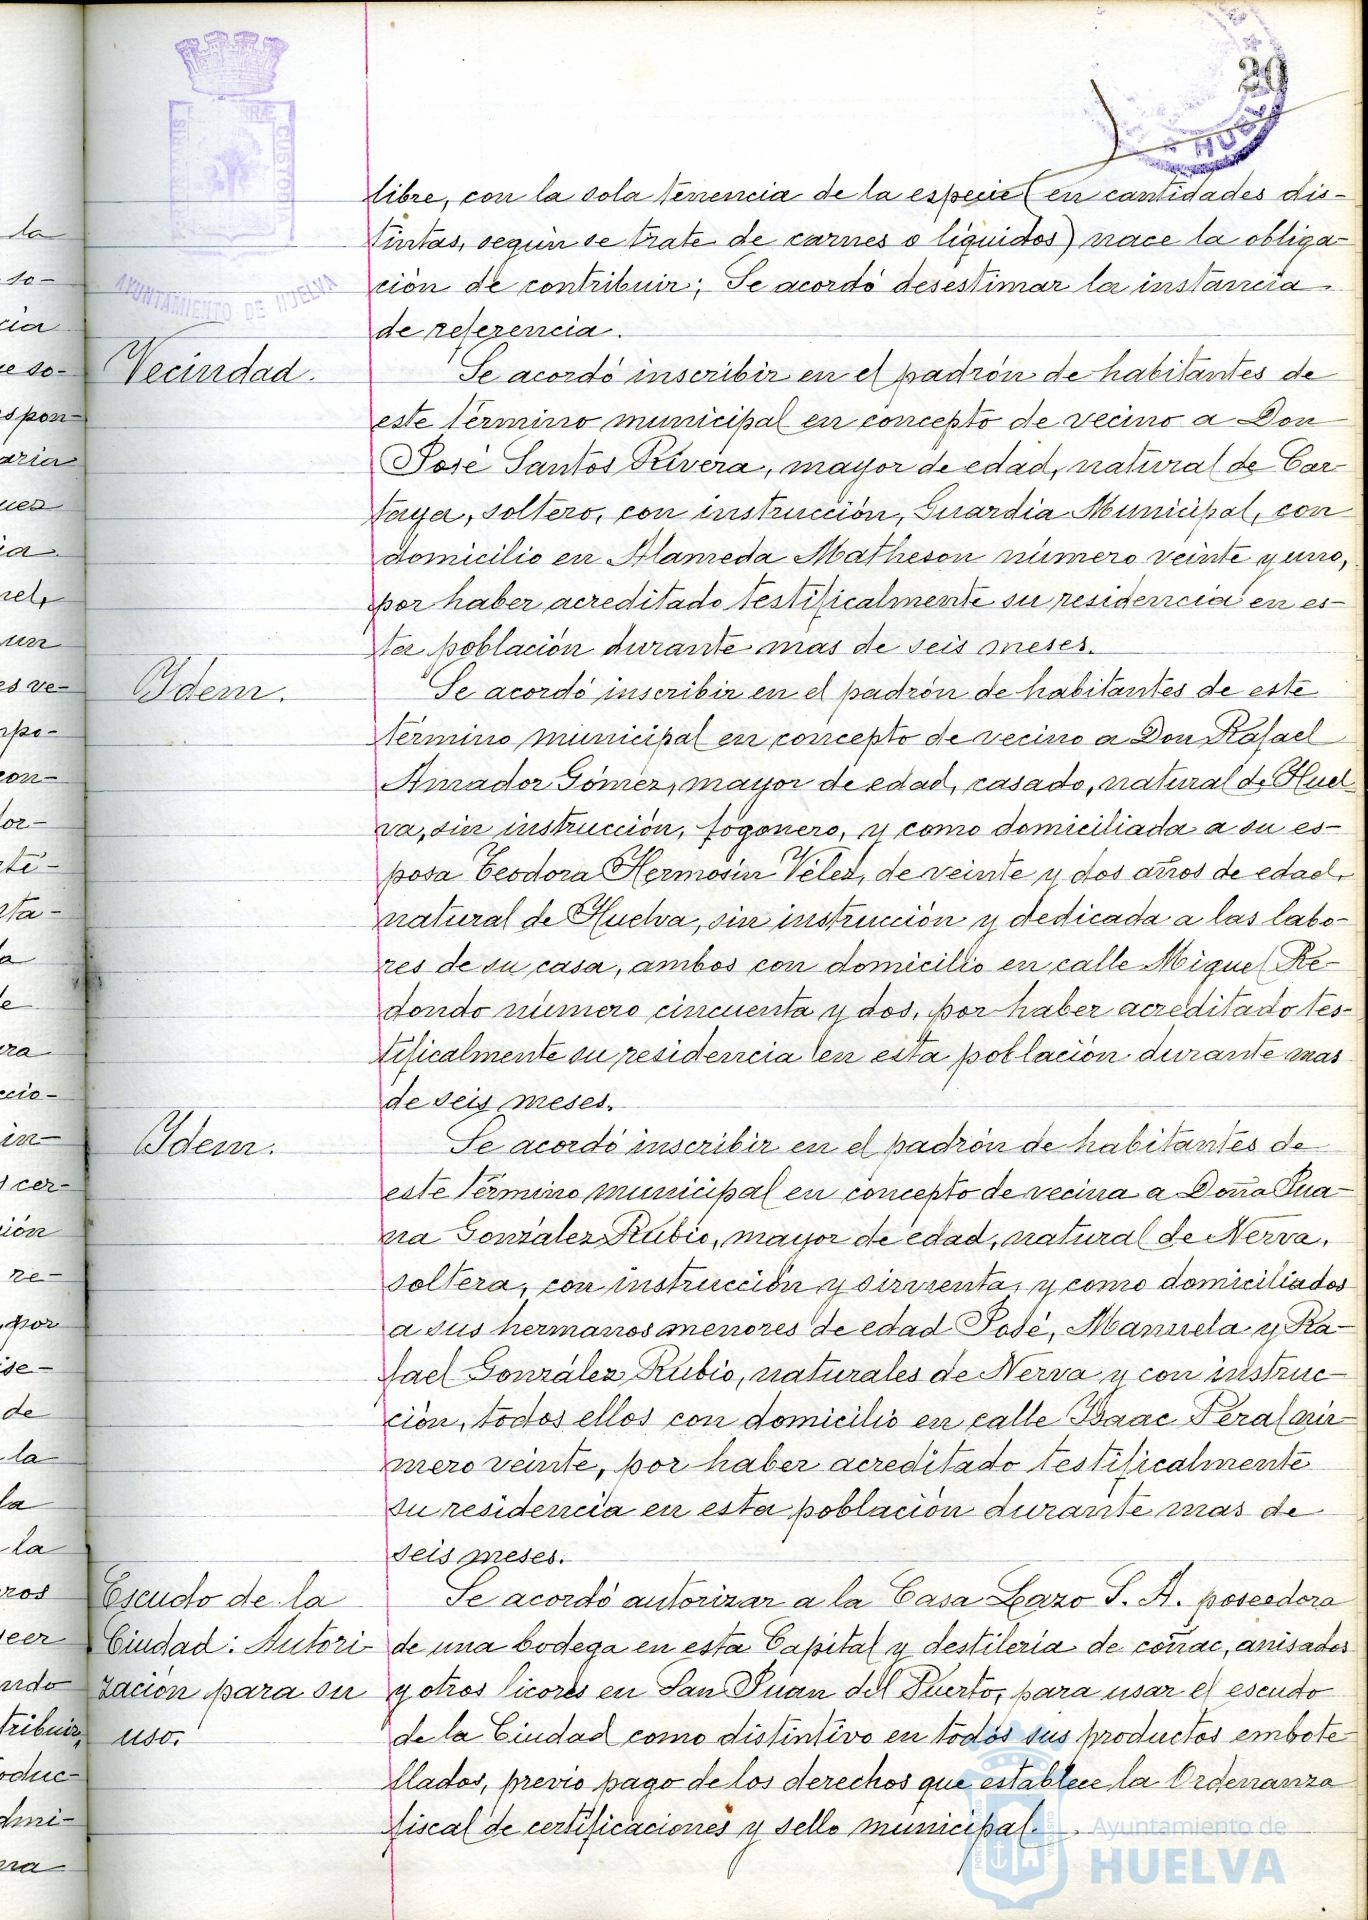 20
HUELVA
PORTUS MARIS ET TERRÆ CUSTODIA
AYUNTAMIENTO DE HUELVA
libre, con la sola tenencia de la especie (en cantidades dis-
tintas, según se trate de carnes o líquidos) nace la obliga-
ción de contribuir; Se acordó desestimar la instancia
de referencia.
Vecindad.
Se acordó inscribir en el padrón de habitantes de
este término municipal en concepto de vecino a Don
José Santos Rivera, mayor de edad, natural de Car-
taya, soltero, con instrucción, Guardia Municipal, con
domicilio en Alameda Matheson número veinte y uno,
por haber acreditado testificalmente su residencia en es-
ta población durante mas de seis meses.
Idem.
Se acordó inscribir en el padrón de habitantes de este
término municipal en concepto de vecino a Don Rafael
Amador Gómez, mayor de edad, casado, natural de Huel-
va, sin instrucción, fogonero, y como domiciliada a su es-
posa Teodora Hermosín Vélez, de veinte y dos años de edad,
natural de Huelva, sin instrucción y dedicada a las labo-
res de su casa, ambos con domicilio en calle Miguel Re-
dondo número cincuenta y dos, por haber acreditado tes-
tificalmente su residencia en esta población durante mas
de seis meses.
Idem.
Se acordó inscribir en el padrón de habitantes de
este término municipal en concepto de vecina a Doña Jua-
na González Rubio, mayor de edad, natural de Nerva,
soltera, con instrucción y sirvienta, y como domiciliados
a sus hermanos menores de edad José, Manuela y Ra-
fael González Rubio, naturales de Nerva y con instruc-
ción, todos ellos con domicilio en calle Isaac Peral nú-
mero veinte, por haber acreditado testificalmente
su residencia en esta población durante mas de
seis meses.
Escudo de la
Ciudad: Autori-
zación para su
uso.
Se acordó autorizar a la Casa Lazo S. A. poseedora
de una bodega en esta Capital y destilería de coñac, anisados
y otros licores en San Juan del Puerto, para usar el escudo
de la Ciudad como distintivo en todos sus productos embote-
llados, previo pago de los derechos que establece la Ordenanza
fiscal de certificaciones y sello municipal.
Ayuntamiento de
HUELVA